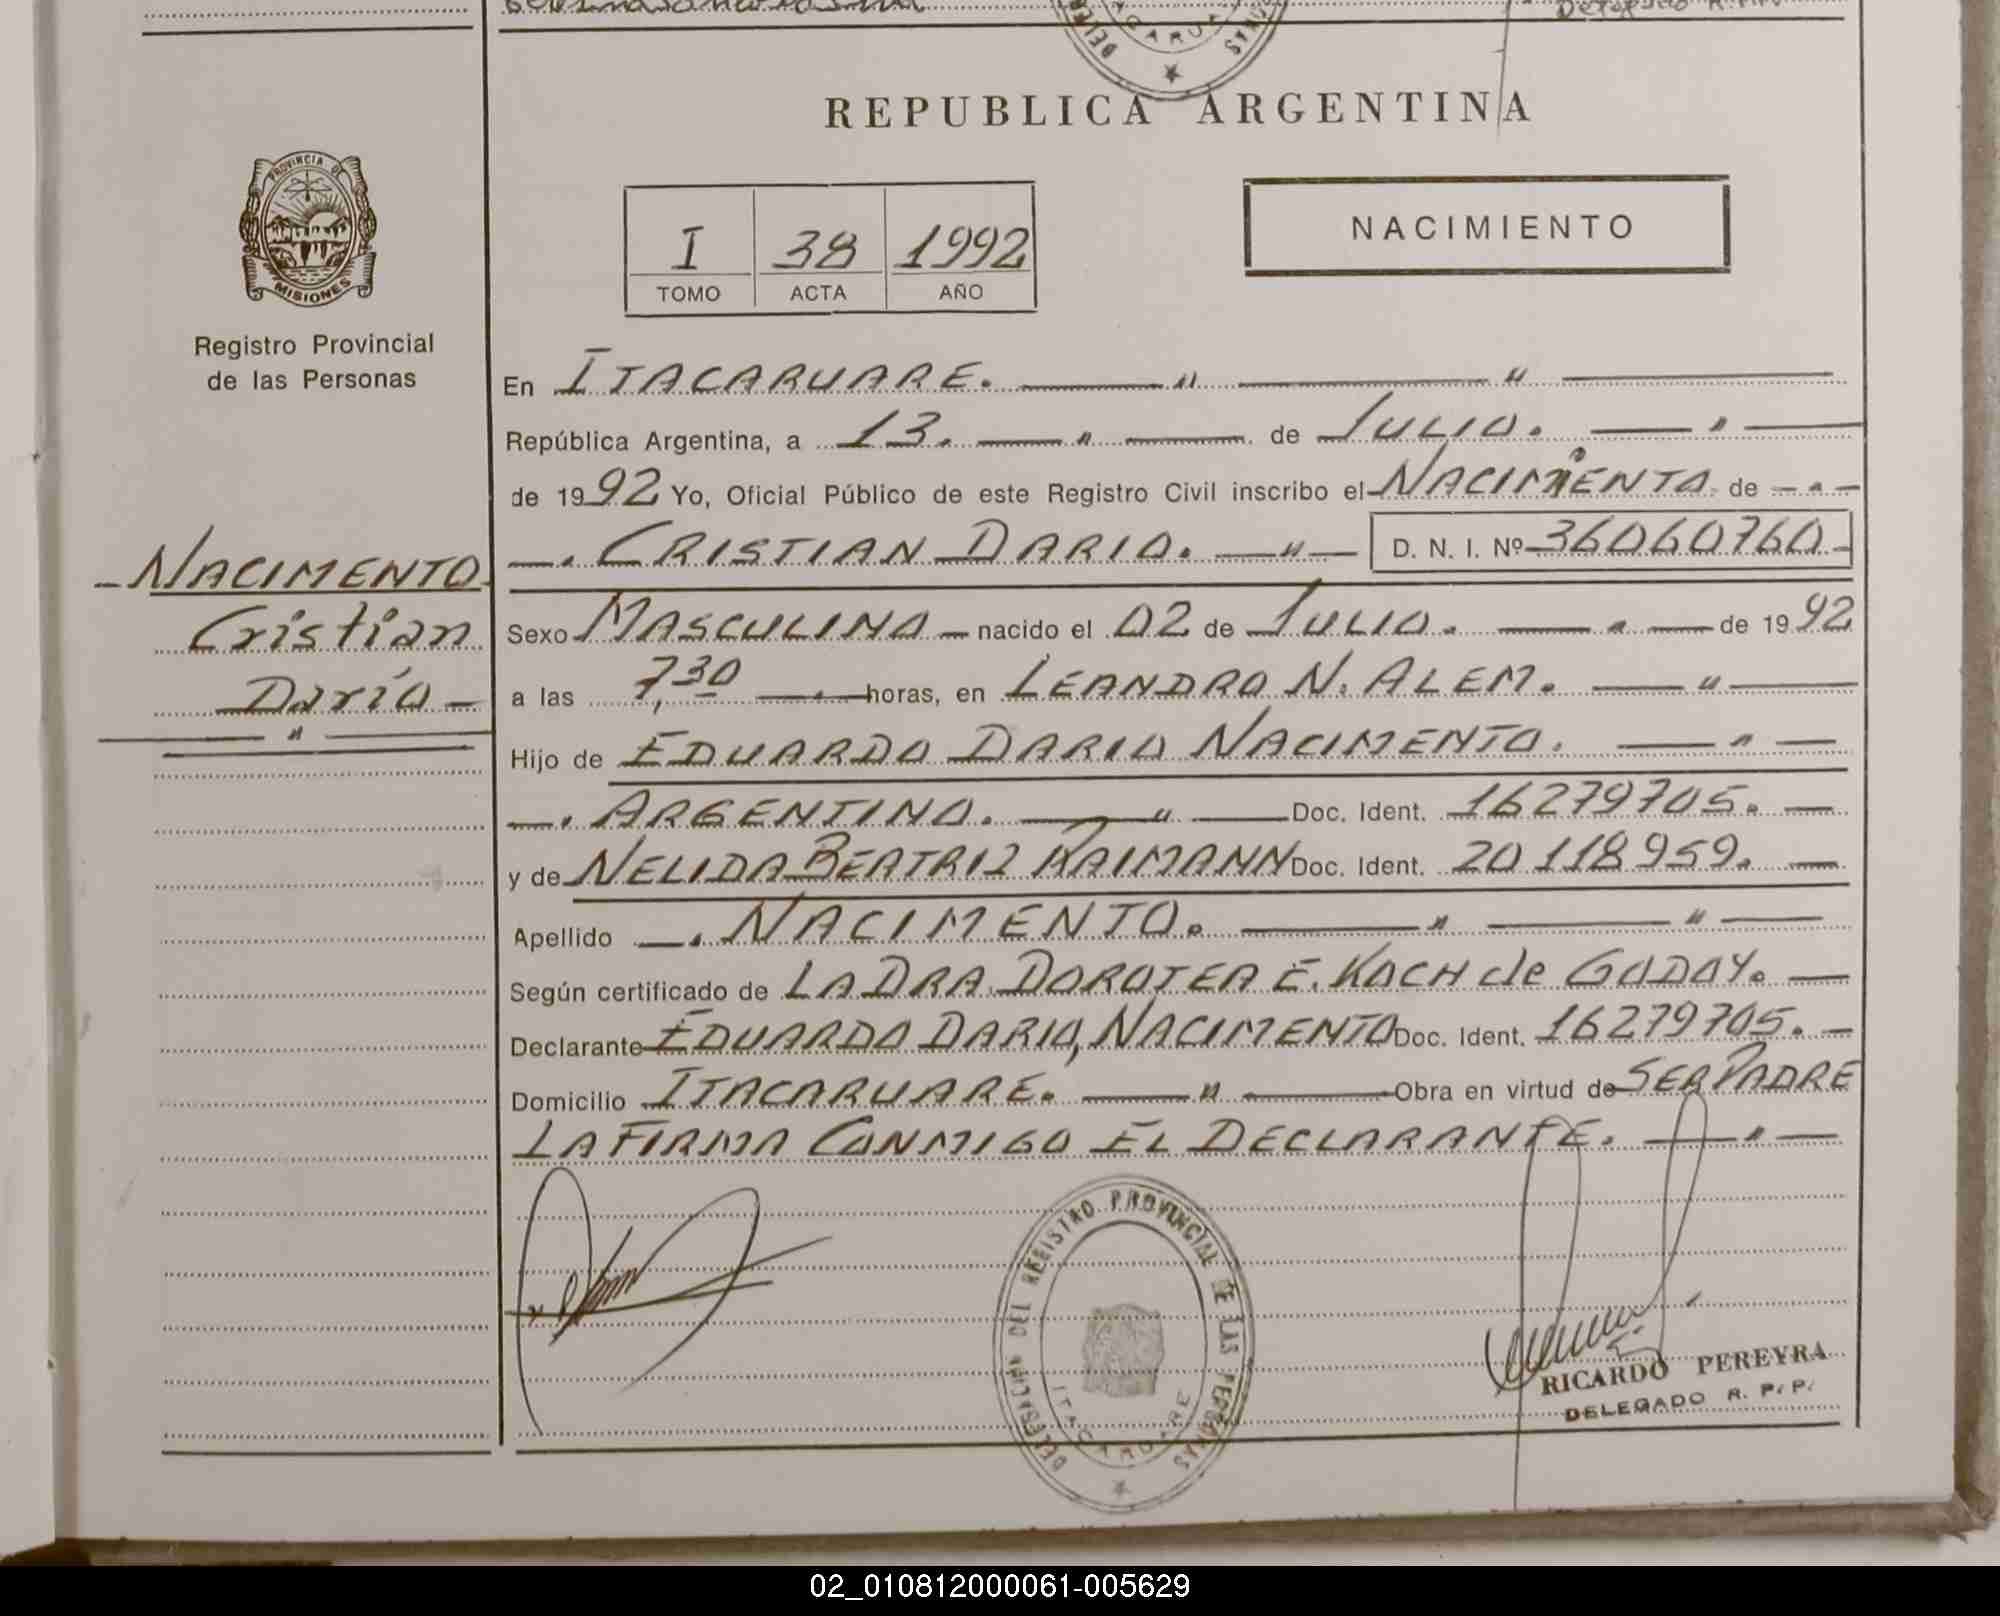 REPUBLICA ARGENTINA
PROVINCIA DE
MISIONES
Registro Provincial
de las Personas
I 38 1992
TOMO ACTA AÑO
NACIMIENTO
En ITACARUARE. " "
República Argentina, a 13. " de JULIO. "
de 1992 Yo, Oficial Público de este Registro Civil inscribo el NACIMIENTO de "
CRISTIAN DARIO. " D. N. I. Nº 36060760
NACIMENTO
Cristian
Darío
Sexo MASCULINO nacido el 02 de JULIO. " de 1992
a las 7,30 horas, en LEANDRO N. ALEM. "
Hijo de EDUARDO DARIO NACIMENTO. "
ARGENTINO. " Doc. Ident. 16279705.
y de NELIDA BEATRIZ RAIMANN Doc. Ident. 20118959.
Apellido NACIMENTO. " "
Según certificado de LA DRA. DOROTEA E. KOCH de GODOY.
Declarante EDUARDO DARIO, NACIMENTO Doc. Ident. 16279705.
Domicilio ITACARUARE. " Obra en virtud de SER PADRE
LA FIRMA CONMIGO EL DECLARANTE. "
DELEGACION DEL REGISTRO PROVINCIAL DE LAS PERSONAS
ITACARUARE
RICARDO PEREYRA
DELEGADO R. P. P.
02_010812000061-005629